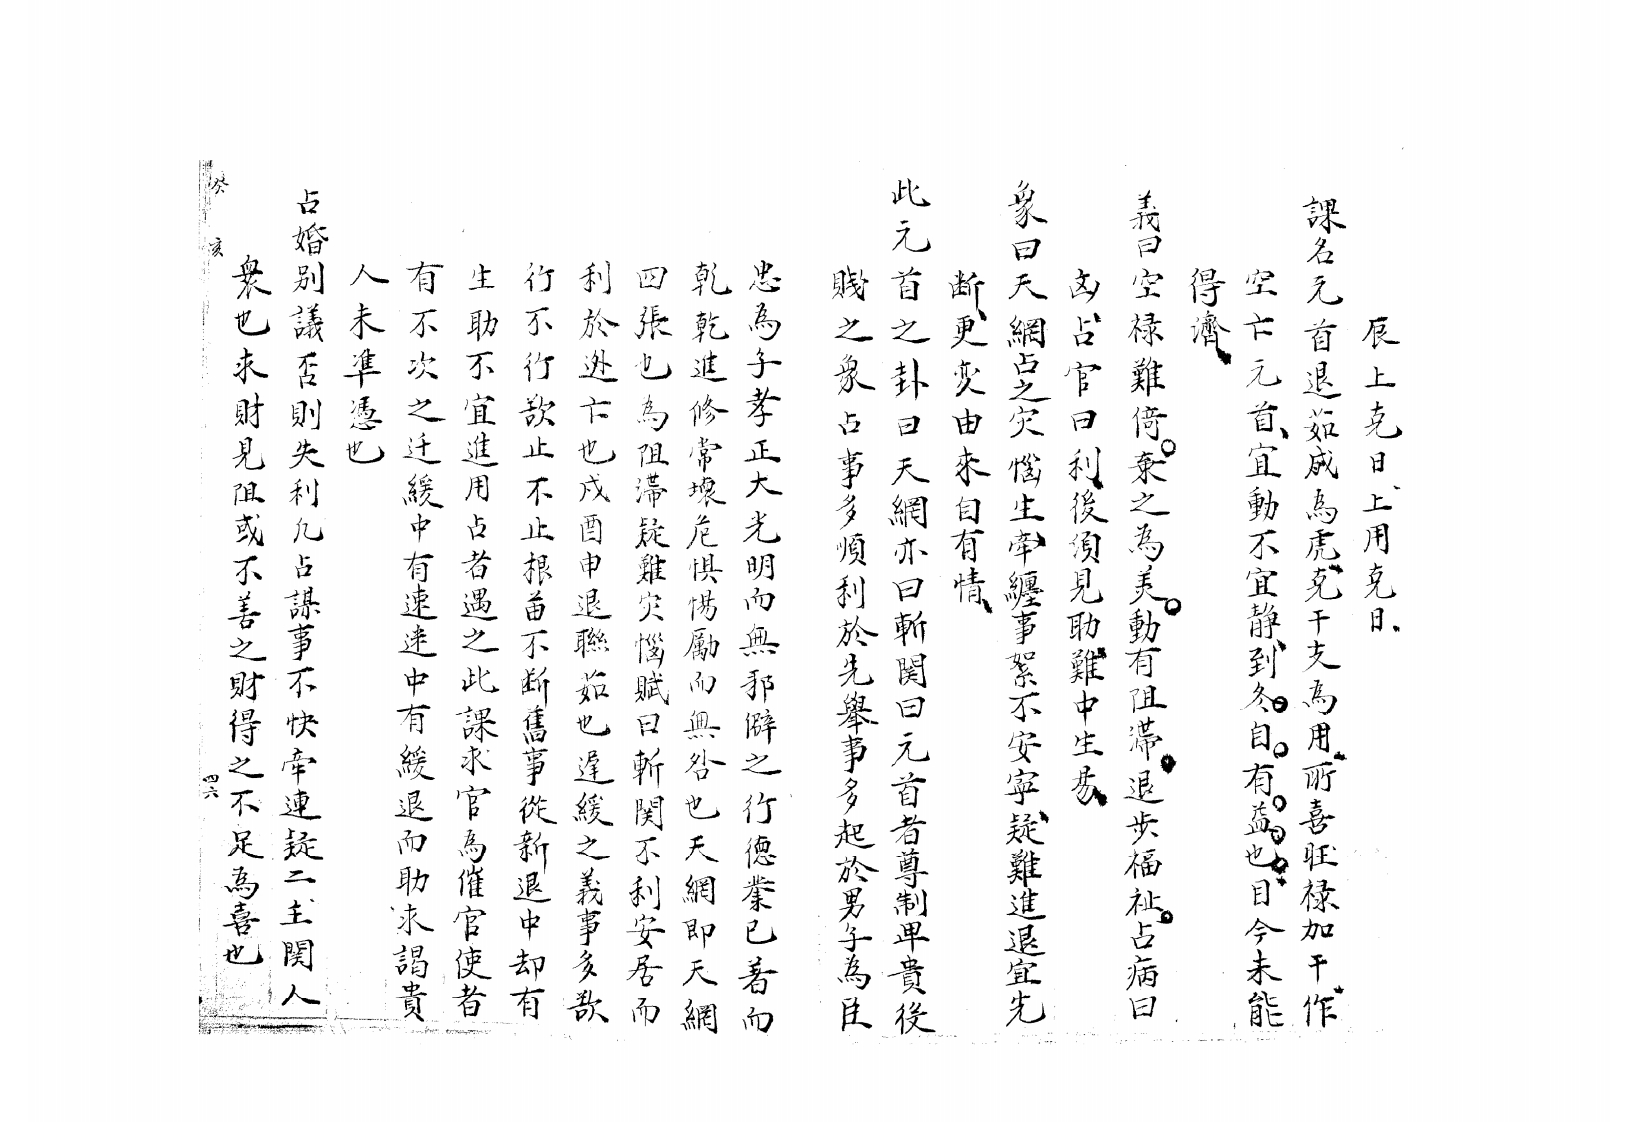 辰上克日上用克日
課名元首退茹咸為虎克干支為用所喜旺祿加干作
空亡元首宜動不宜靜到冬自有益也目今未能
得濟
義曰空祿難倚棄之為美動有阻滯退步福祉占病曰
凶占官曰利後須見助難中生易
象曰天網占之灾惱生牽纏事絮不安寧疑難進退宜先
断更变由來自有情
此元首之卦曰天網亦曰斬関曰元首者尊制卑貴後
賤之象占事多順利於先舉事多起於男子為臣
忠為子孝正大光明而無邪僻之行德業已著而
乾乾進修常懷危惧惕厲而無咎也天網即天網
四張也為阻滯疑難灾惱賦曰斬関不利安居而
利於逃亡也戌酉申退聯茹也遲緩之義事多欲
行不行欲止不止根苗不断舊事從新退中却有
生助不宜進用占者遇之此課求官為催官使者
有不次之迁緩中有速速中有緩退而助求謁貴
人未準憑也
占婚別議否則失利凡占謀事不快牽連疑二主関人
衆也求財見阻或不善之財得之不足為喜也
癸亥
四六